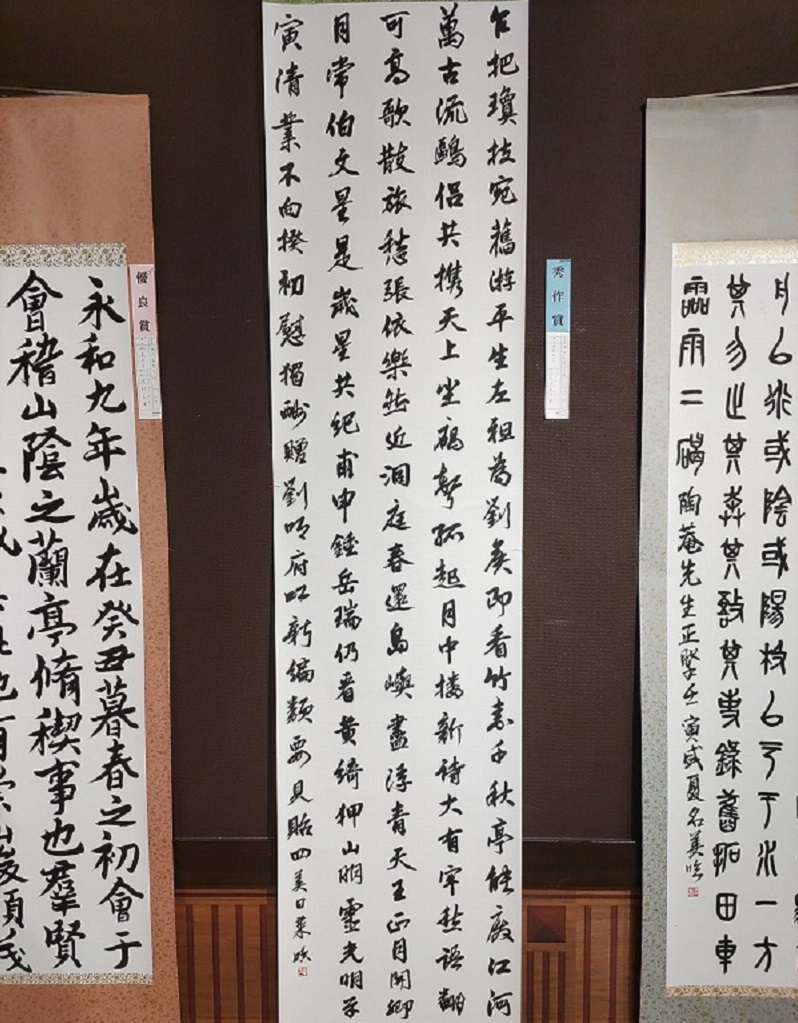 月㠯 或陰或陽 㠯 于水一方
其 其奔其敔其 錄舊拓田車
霝雨二碣陶菴先生正 壬寅盛夏名美臨
秀作賞
乞把瓊枝宛舊游平生左袒為劉矣即看竹素千秋 能廢江河
萬古流鷗侶共攜天上坐鵷聲孤起月中樓新詩大有牢愁語翻
可高歌散旅愁張依樂 近洞庭春還島嶼盡浮青天王正月開卿
月常伯文星是歲星共紀甫申鍾岳瑞仍看黃綺狎山明靈光明
寅清業不向揆初慰獨酬贈劉明府以新編類要見貽四美日 臨
優良賞
永和九年歲在癸丑暮春之初會于
會稽山陰之蘭亭脩稧事也羣賢
咸 此地有崇山峻領茂